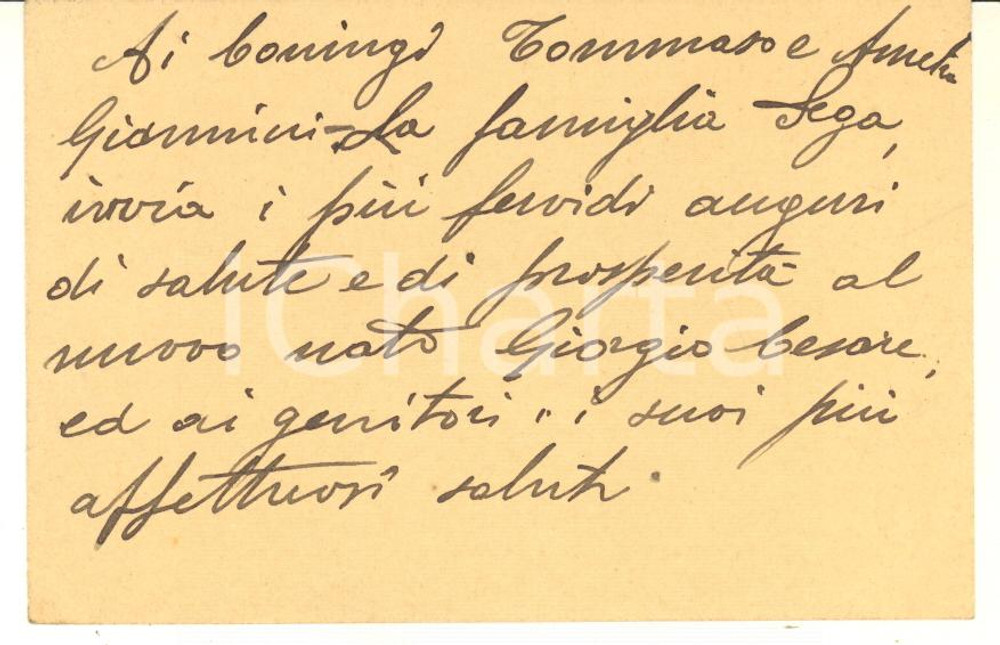 Ai Coniugi Tommaso e Amelia
Giannini = La famiglia Sega,
invia i più fervidi auguri
di salute e di prosperità al
nuovo nato Giorgio Cesare,
ed ai genitori " i suoi più
affettuosi saluti.
ICharta